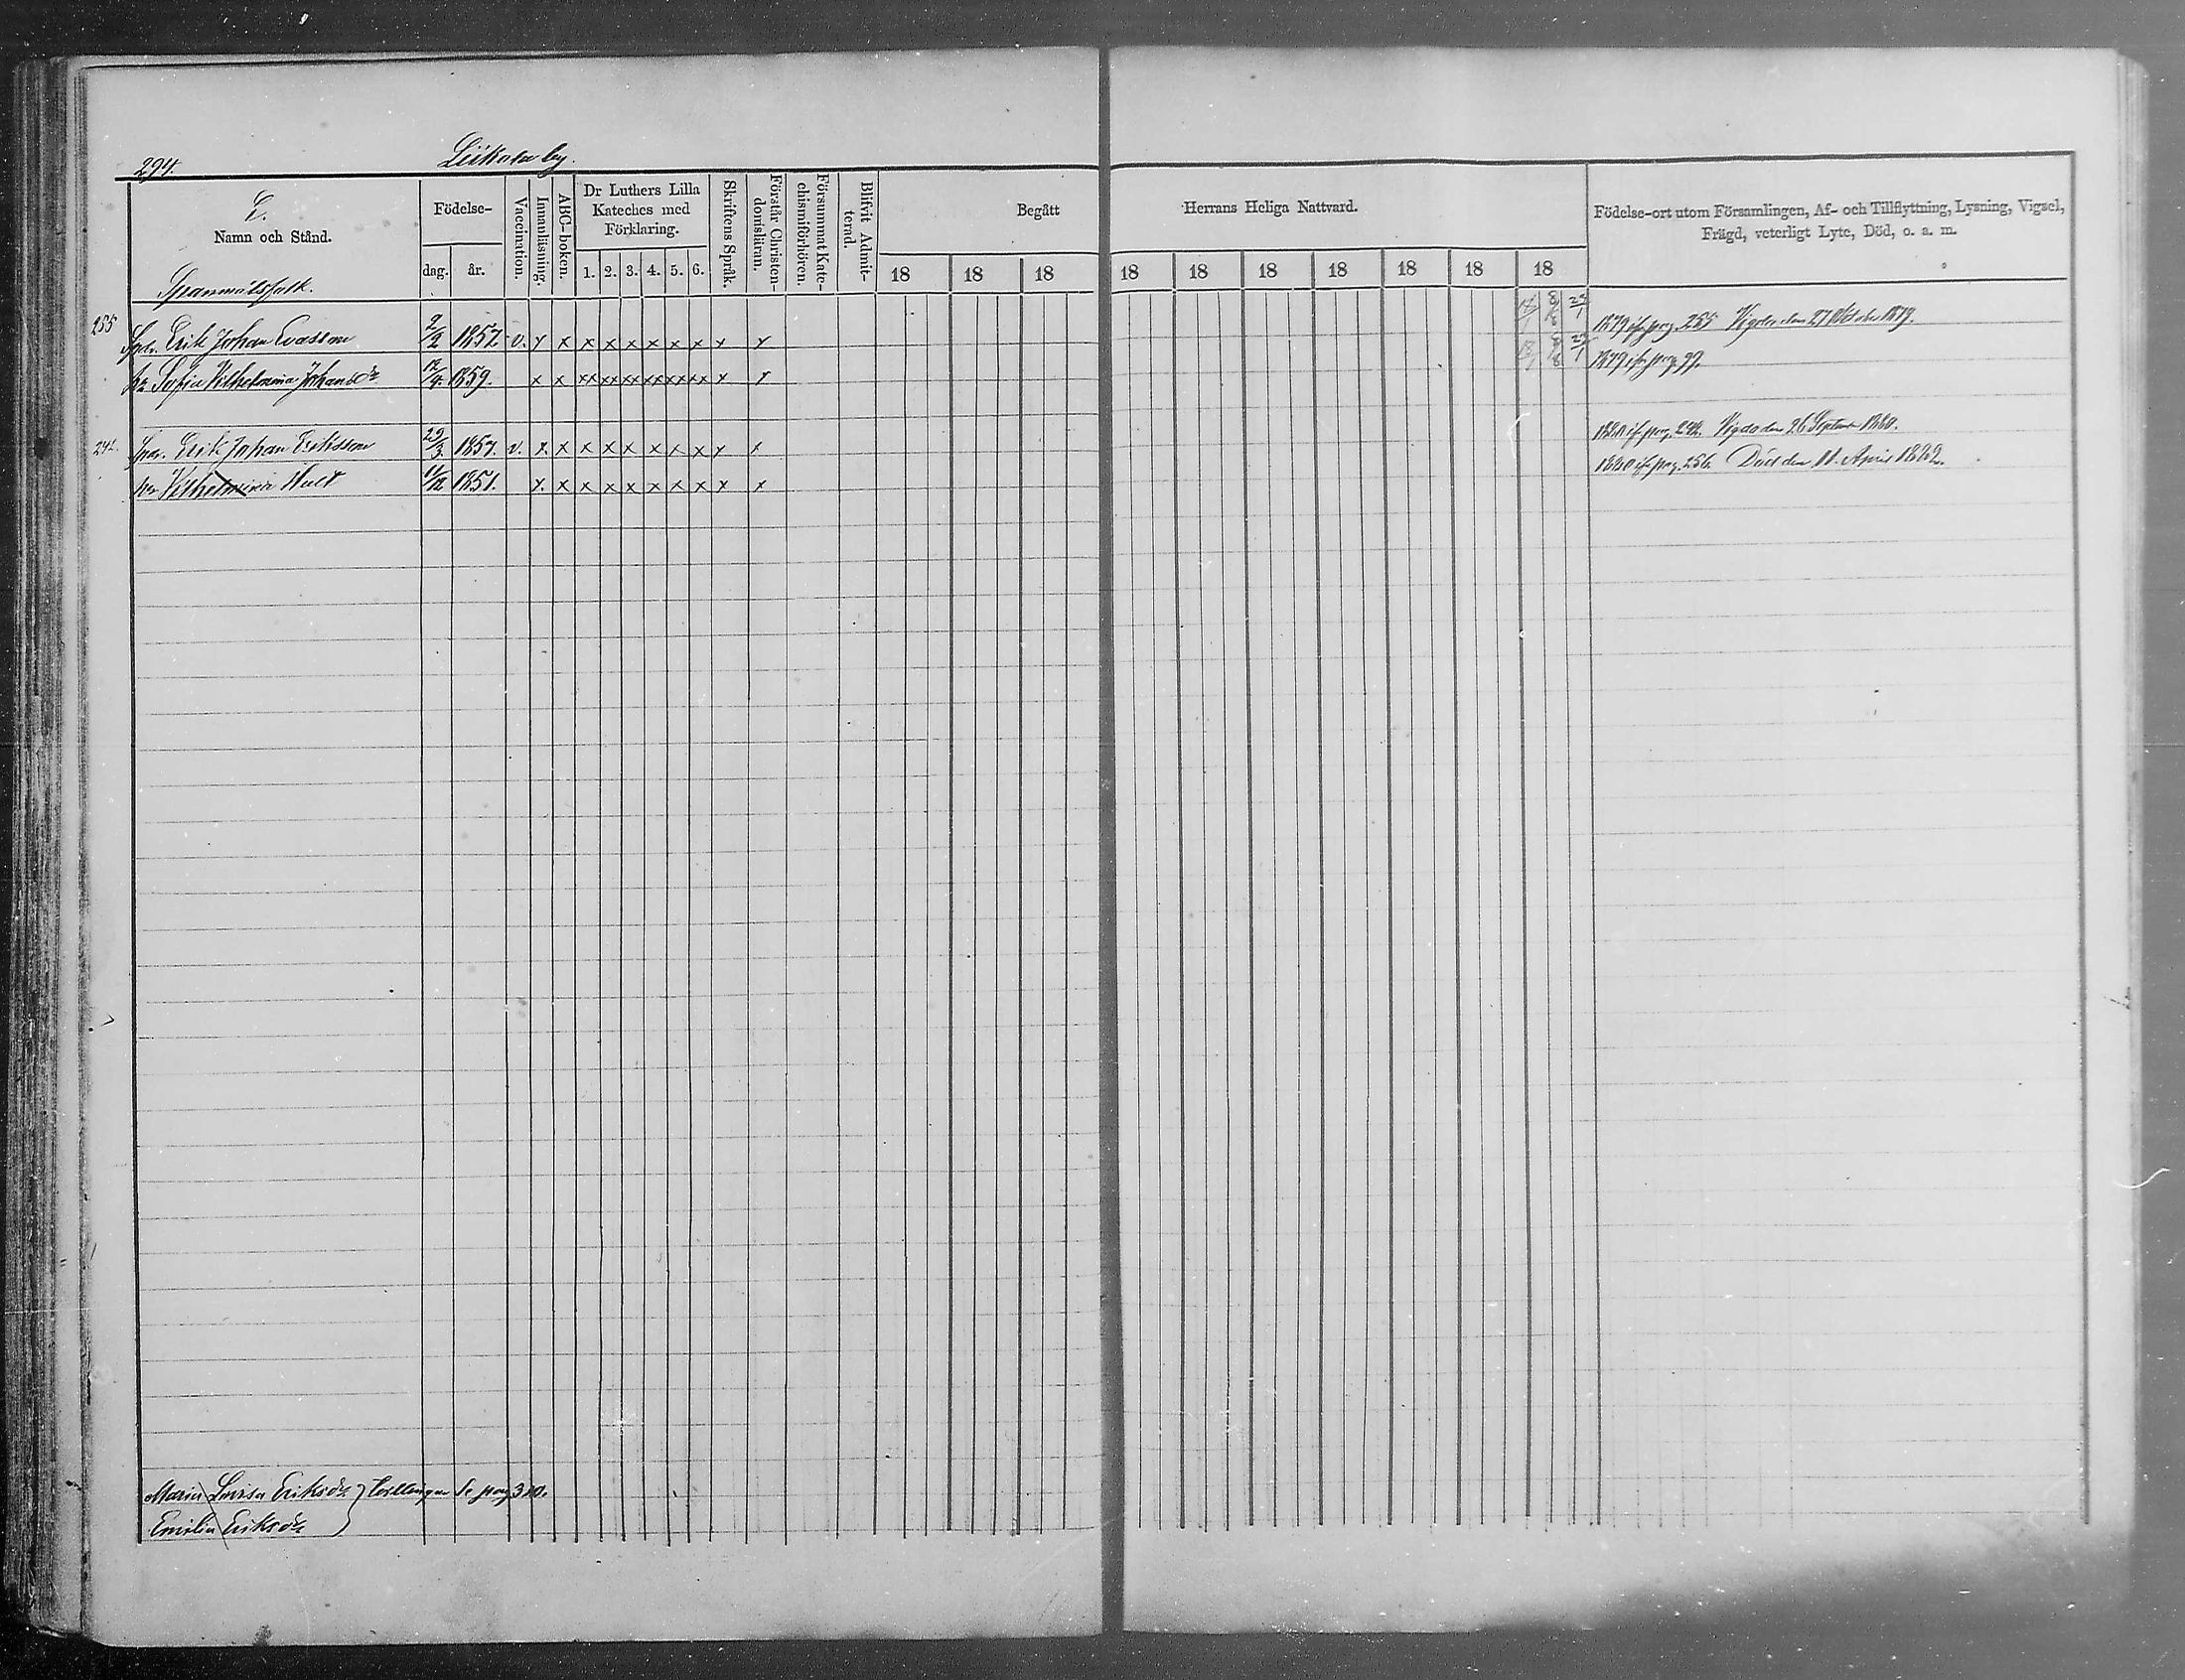 294.
Leikola by.
C.
Namn och Stånd.
Spanmålsfolk.
Födelse-
dag. år.
Vaccination.
Innanläsning.
ABC-boken.
Dr Luthers Lilla
Kateches med
Förklaring.
1. 2. 3. 4. 5. 6.
Skriftens Språk.
Förstår Christen-
domsläran.
Försummat Kate-
chismiförhören.
Blifvit Admit-
terad.
Begått
Herrans Heliga Nattvard.
18 18 18 18 18 18 18 18 18 18
Födelse-ort utom Församlingen, Af- och Tillflyttning, Lysning, Vigsel,
Frägd, veterligt Lyte, Död, o. a. m.
255 Erik Johan Evasson 2/2 1857. v. x x x x x x x x x x 1879 ifr pag. 255 Vigde den 27 Oktober 1879.
Sofia Vilhelmina Johansdr 12/4 1859. x x xx xx xx xx xx xx x x 1879 ifr pag. 99.
242. Erik Johan Eriksson 29/3 1857. v. x x x x x x x x x x 1880 ifr pag. 242. Vigde den 26 September 1880.
Vilhelmina Hult 11/12 1851. x. x x x x x x x x x 1880 ifr pag. 256. Död den 11. April 1882.
Maria Lovisa Eriksdr } Tvillingar Se pag 310.
Emilia Eriksdr